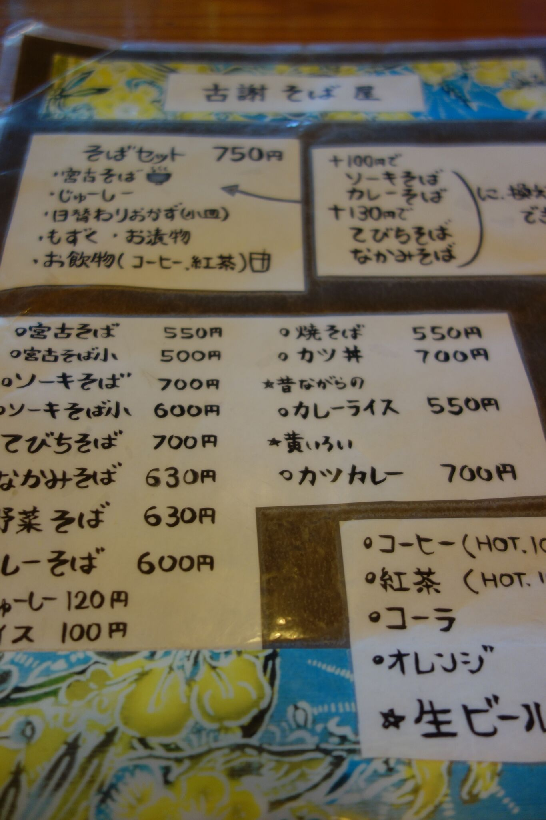 古謝そば屋
そばセット 750円
・宮古そば
・じゅーしー
・日替わりおかず(小皿)
・もずく ・お漬物
・お飲物(コーヒー、紅茶)
+100円で
ソーキそば
カレーそば
+130円で
てびちそば
なかみそば
に、換え
でき
○宮古そば 550円
○宮古そば小 500円
○ソーキそば 700円
○ソーキそば小 600円
てびちそば 700円
なかみそば 630円
野菜そば 630円
レーそば 600円
ゅーしー 120円
イス 100円
○焼そば 550円
○カツ丼 700円
★昔ながらの
○カレーライス 550円
★黄いろい
○カツカレー 700円
○コーヒー(HOT.IC
○紅茶 (HOT.I
○コーラ
○オレンジ
☆生ビール